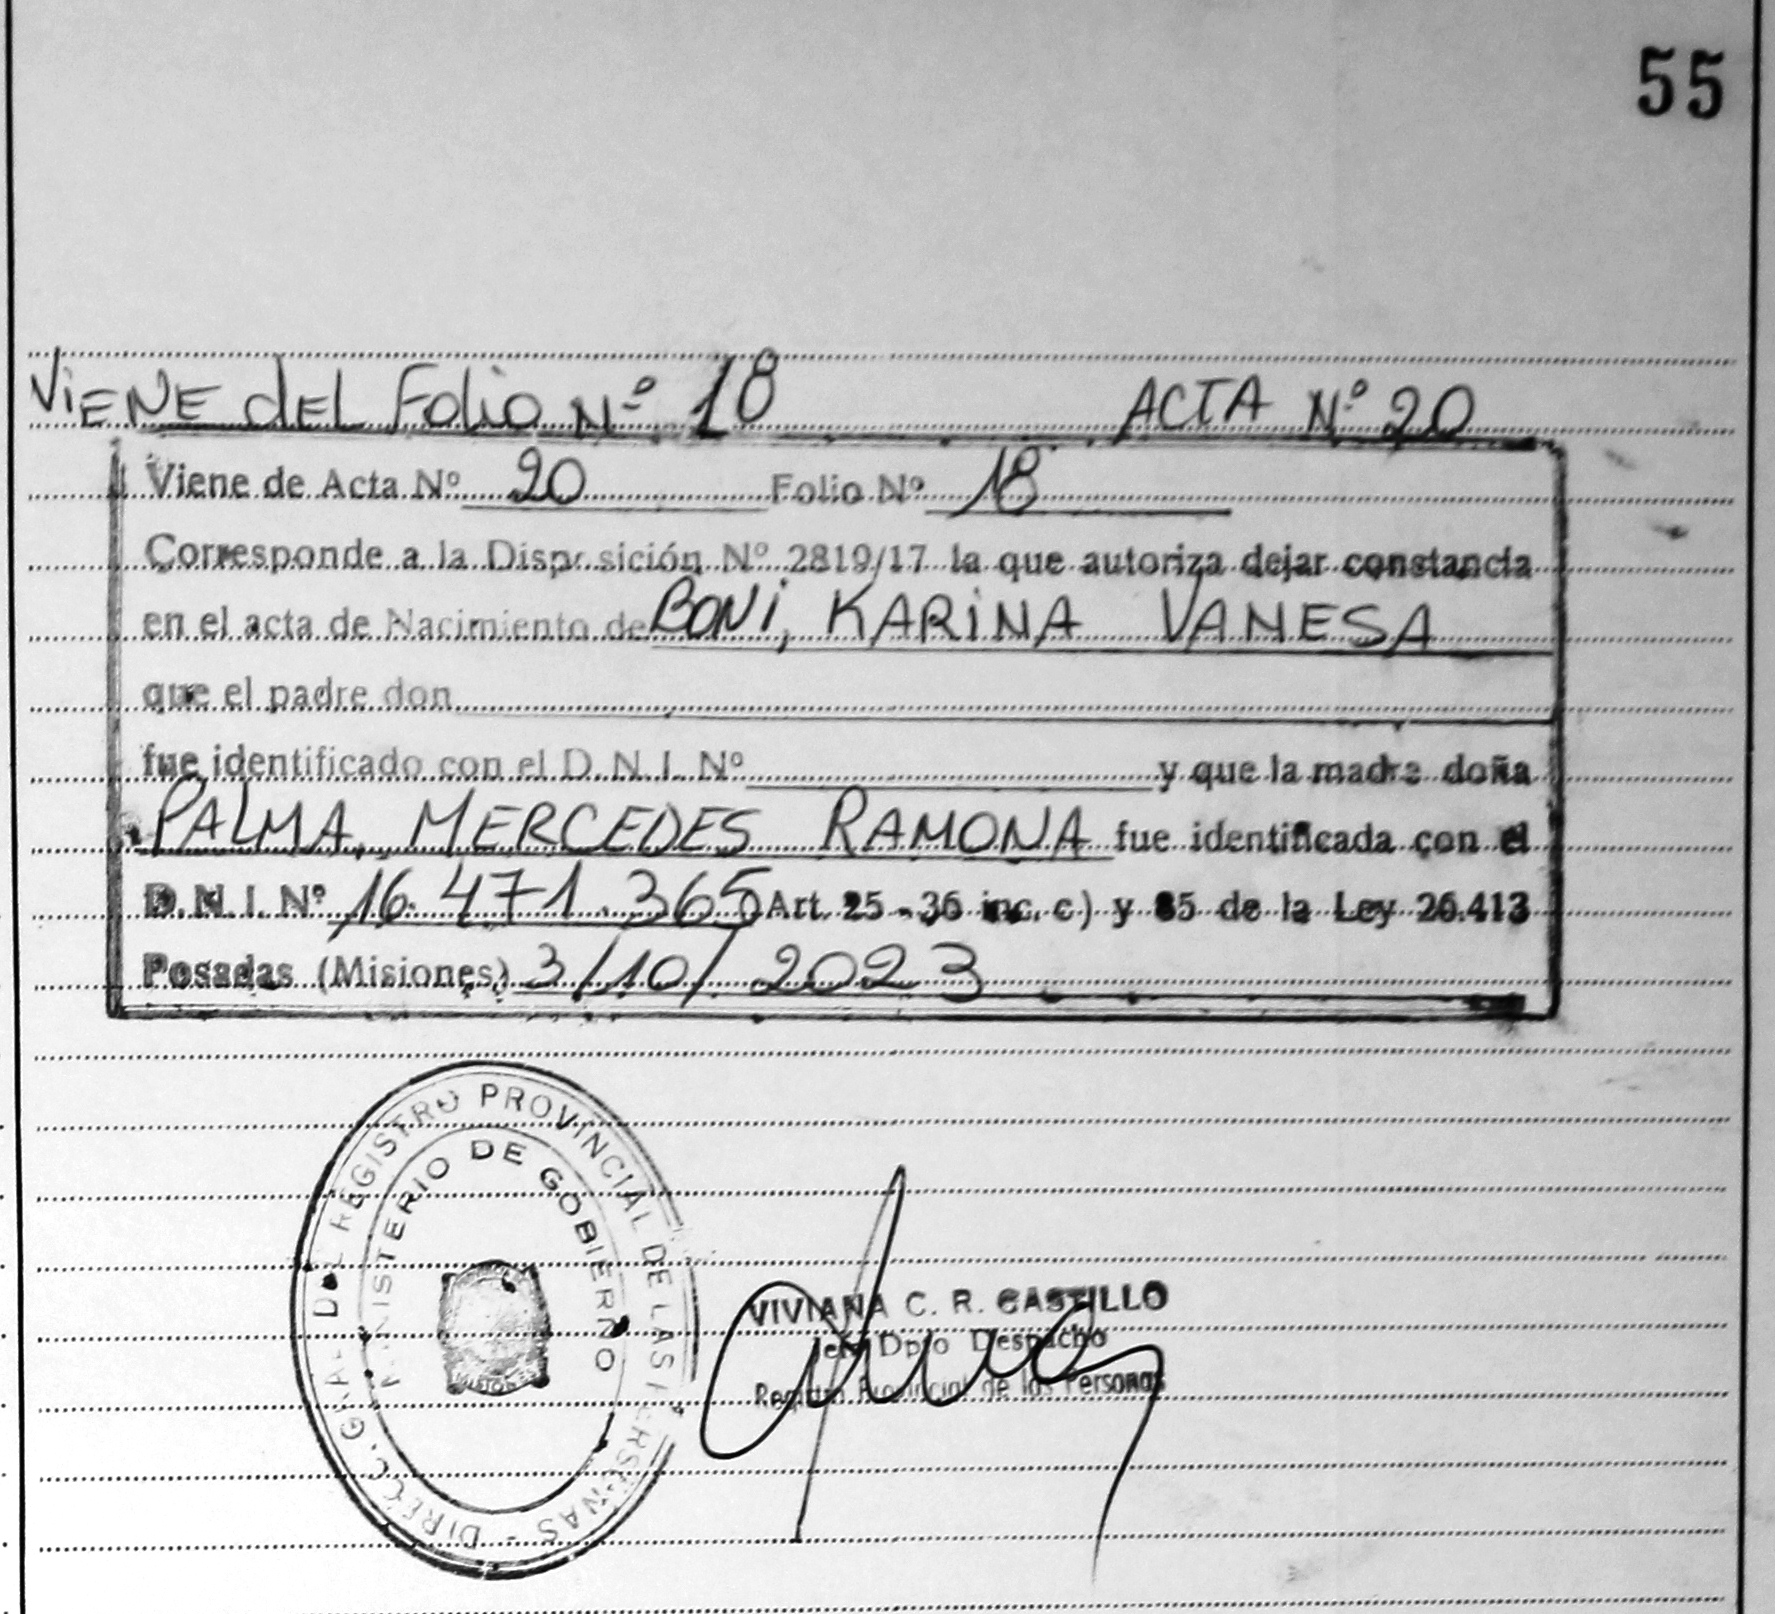 55
ViENE dEL Folio Nº 18 ACTA Nº 20
Viene de Acta Nº 20 Folio Nº 18
Corresponde a la Disposición Nº 2819/17 la que autoriza dejar constancia
en el acta de Nacimiento de BONi, KARiNA VANESA
que el padre don
fue identificado con el D.N.I. Nº y que la madre doña
PALMA, MERCEDES RAMONA fue identificada con el
D.N.I. Nº 16.471.365 Art. 25 - 36 inc. c) y 85 de la Ley 26.413
Posadas (Misiones) 3/10/2023
DIRECC. GRAL. DEL REGISTRO PROVINCIAL DE LAS PERSONAS -
MINISTERIO DE GOBIERNO
MISIONES
VIVIANA C. R. CASTILLO
Jefe Dpto Despacho
Registro Provincial de las Personas